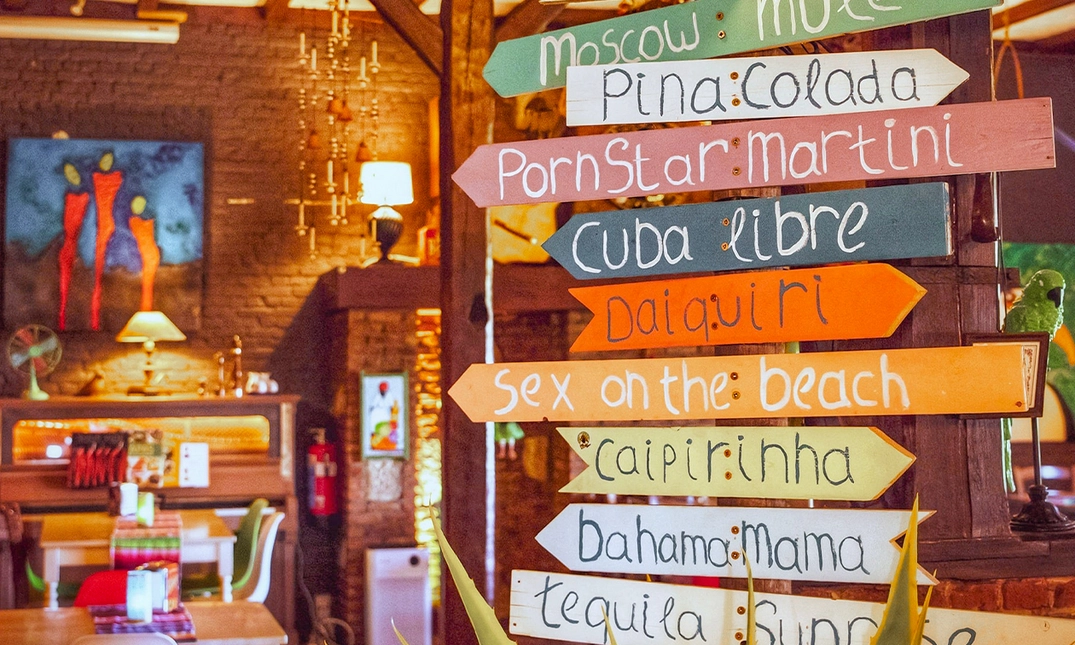 Moscow Mule
Pina Colada
PornStar Martini
Cuba libre
Daiquiri
Sex on the beach
Caipirinha
bahama Mama
tequila Sunrise